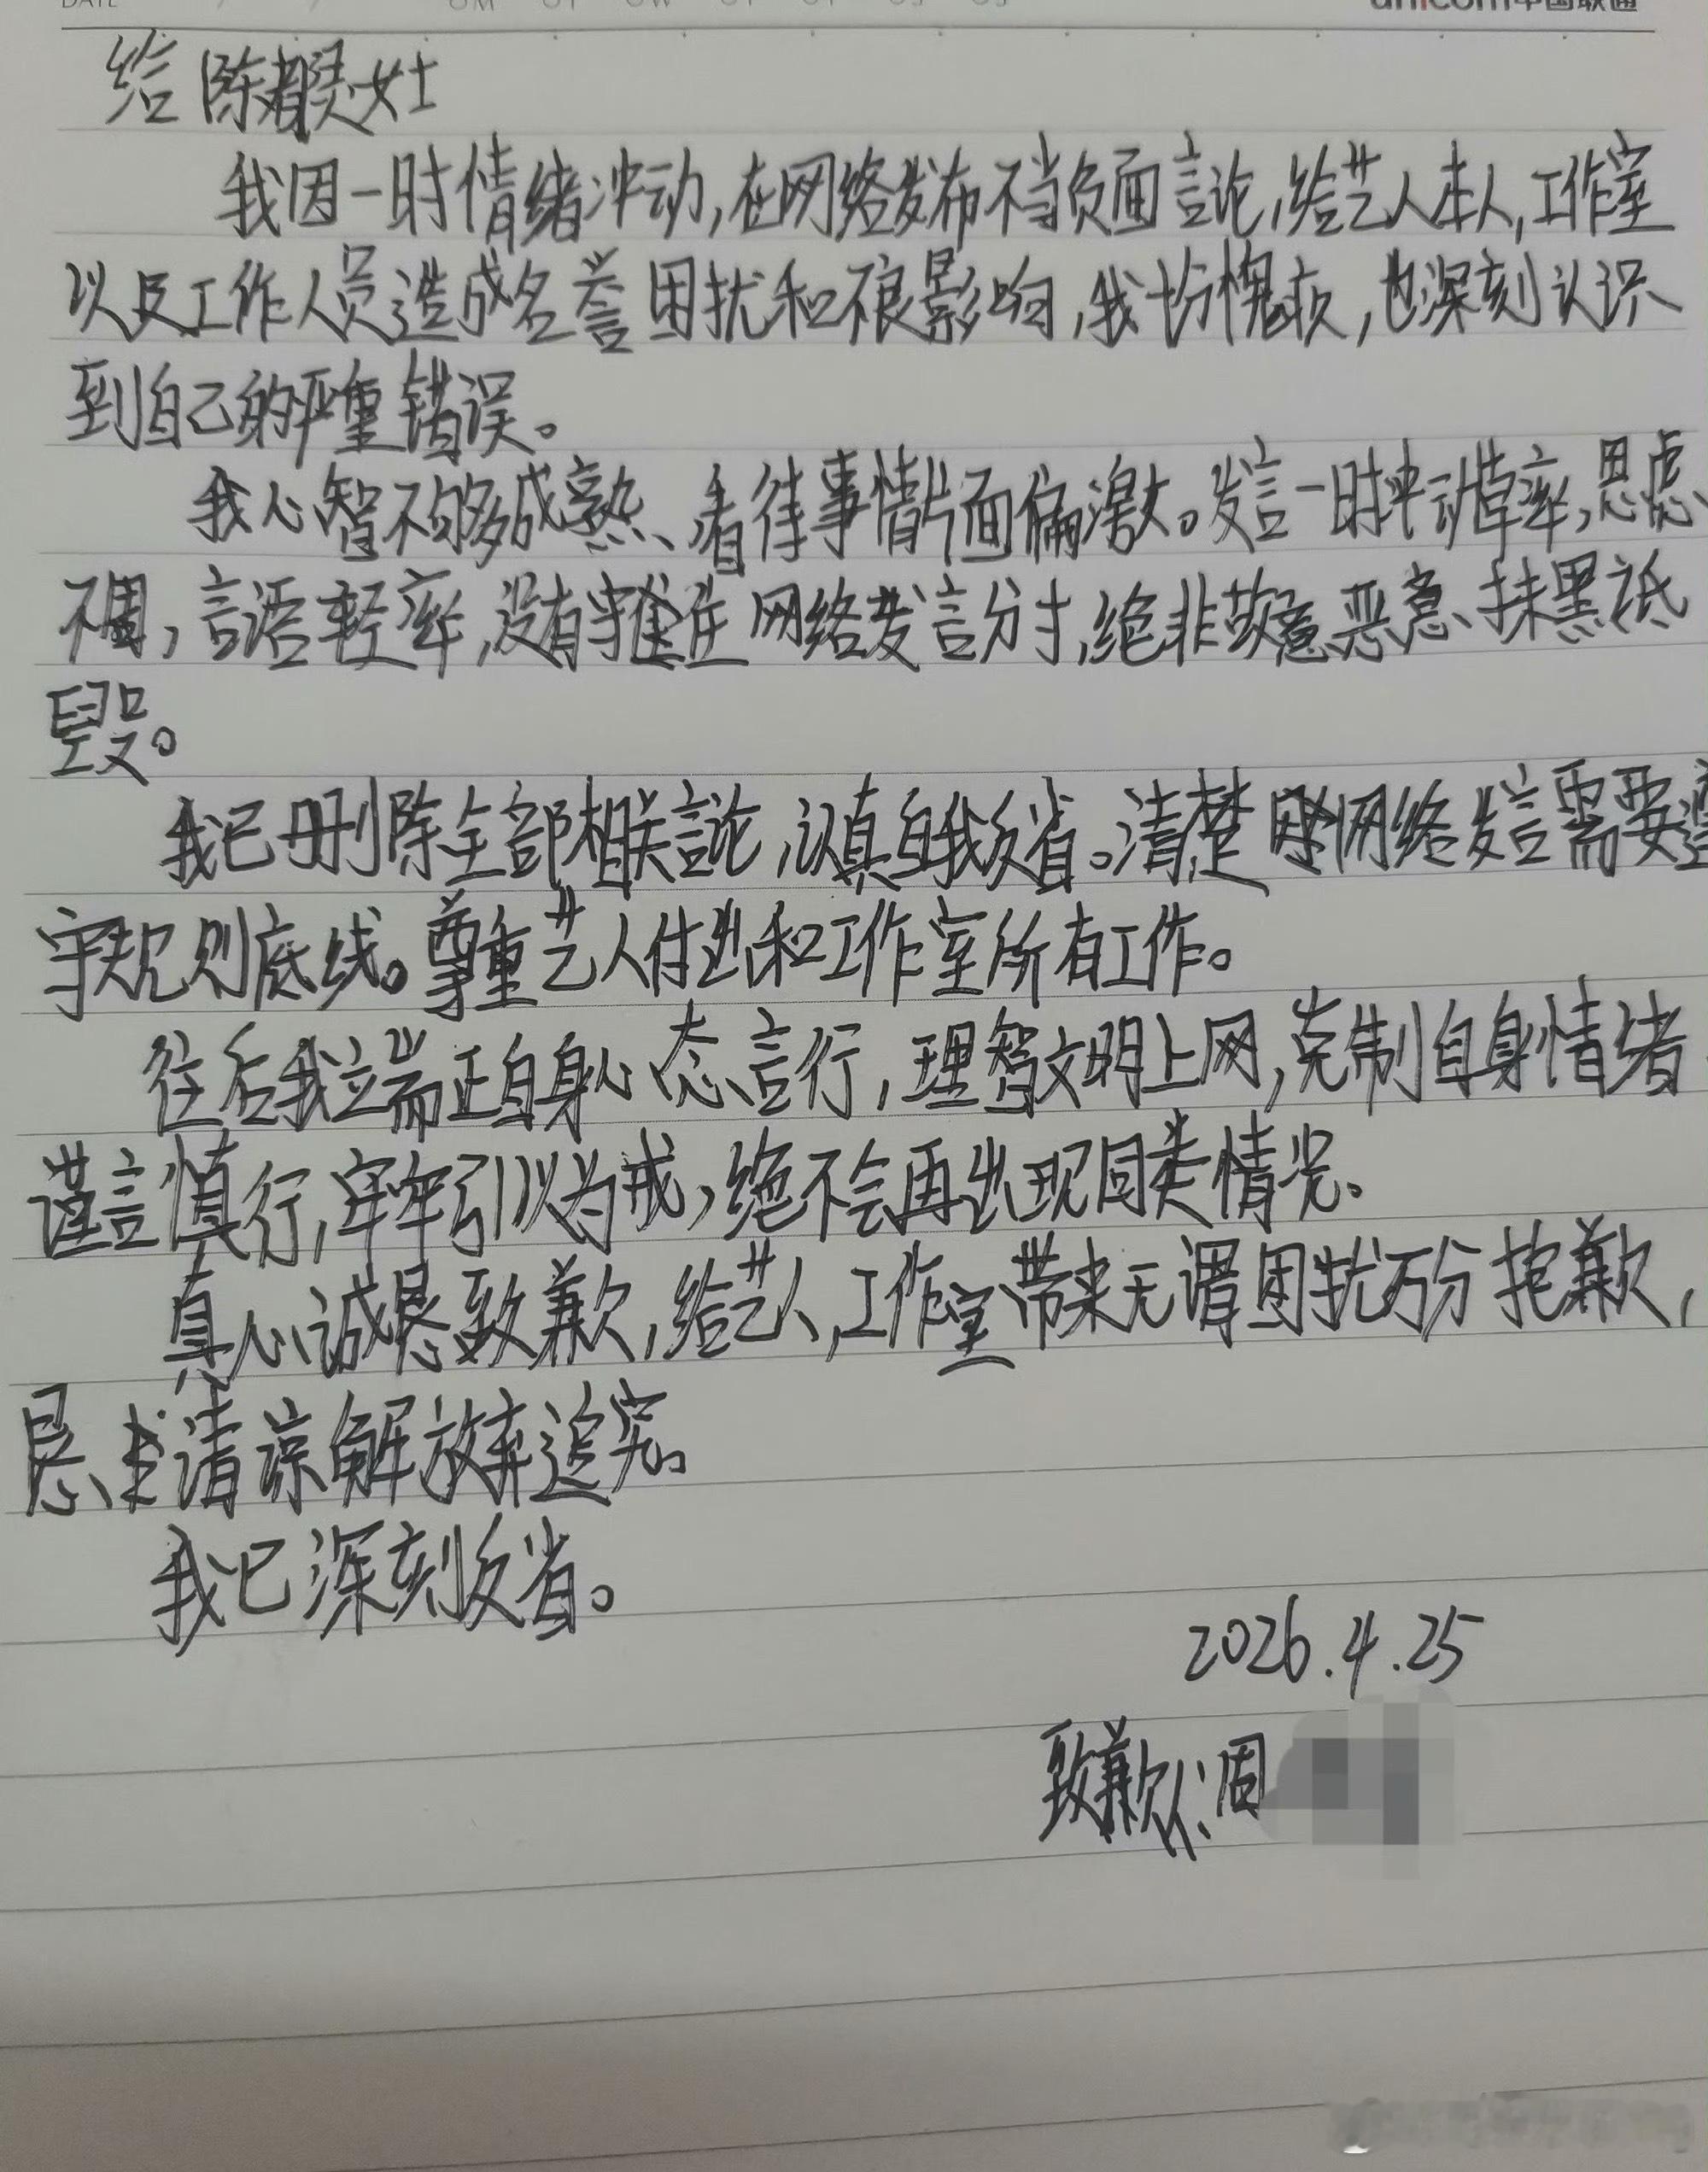 给陈都灵女士
我因一时情绪冲动,在网络发布不当负面言论,给艺人本人,工作室
以及工作人员造成名誉困扰和不良影响,我十分愧疚,也深刻认识
到自己的严重错误。
我心智不够成熟、看待事情片面偏激。发言一时冲动草率,思虑
不周,言语轻率,没有掌握住网络发言分寸,绝非故意恶意、抹黑诋
毁。
我已删除全部相关言论,认真自我反省。清楚网络发言需要遵
守规则底线。尊重艺人付出和工作室所有工作。
往后我端正自身心态言行,理智文明上网,克制自身情绪
谨言慎行,牢牢引以为戒,绝不会再出现同类情况。
真心诚恳致歉,给艺人,工作室带来无谓困扰万分抱歉,
恳求请谅解放弃追究。
我已深刻反省。
2026.4.25
致歉人:周